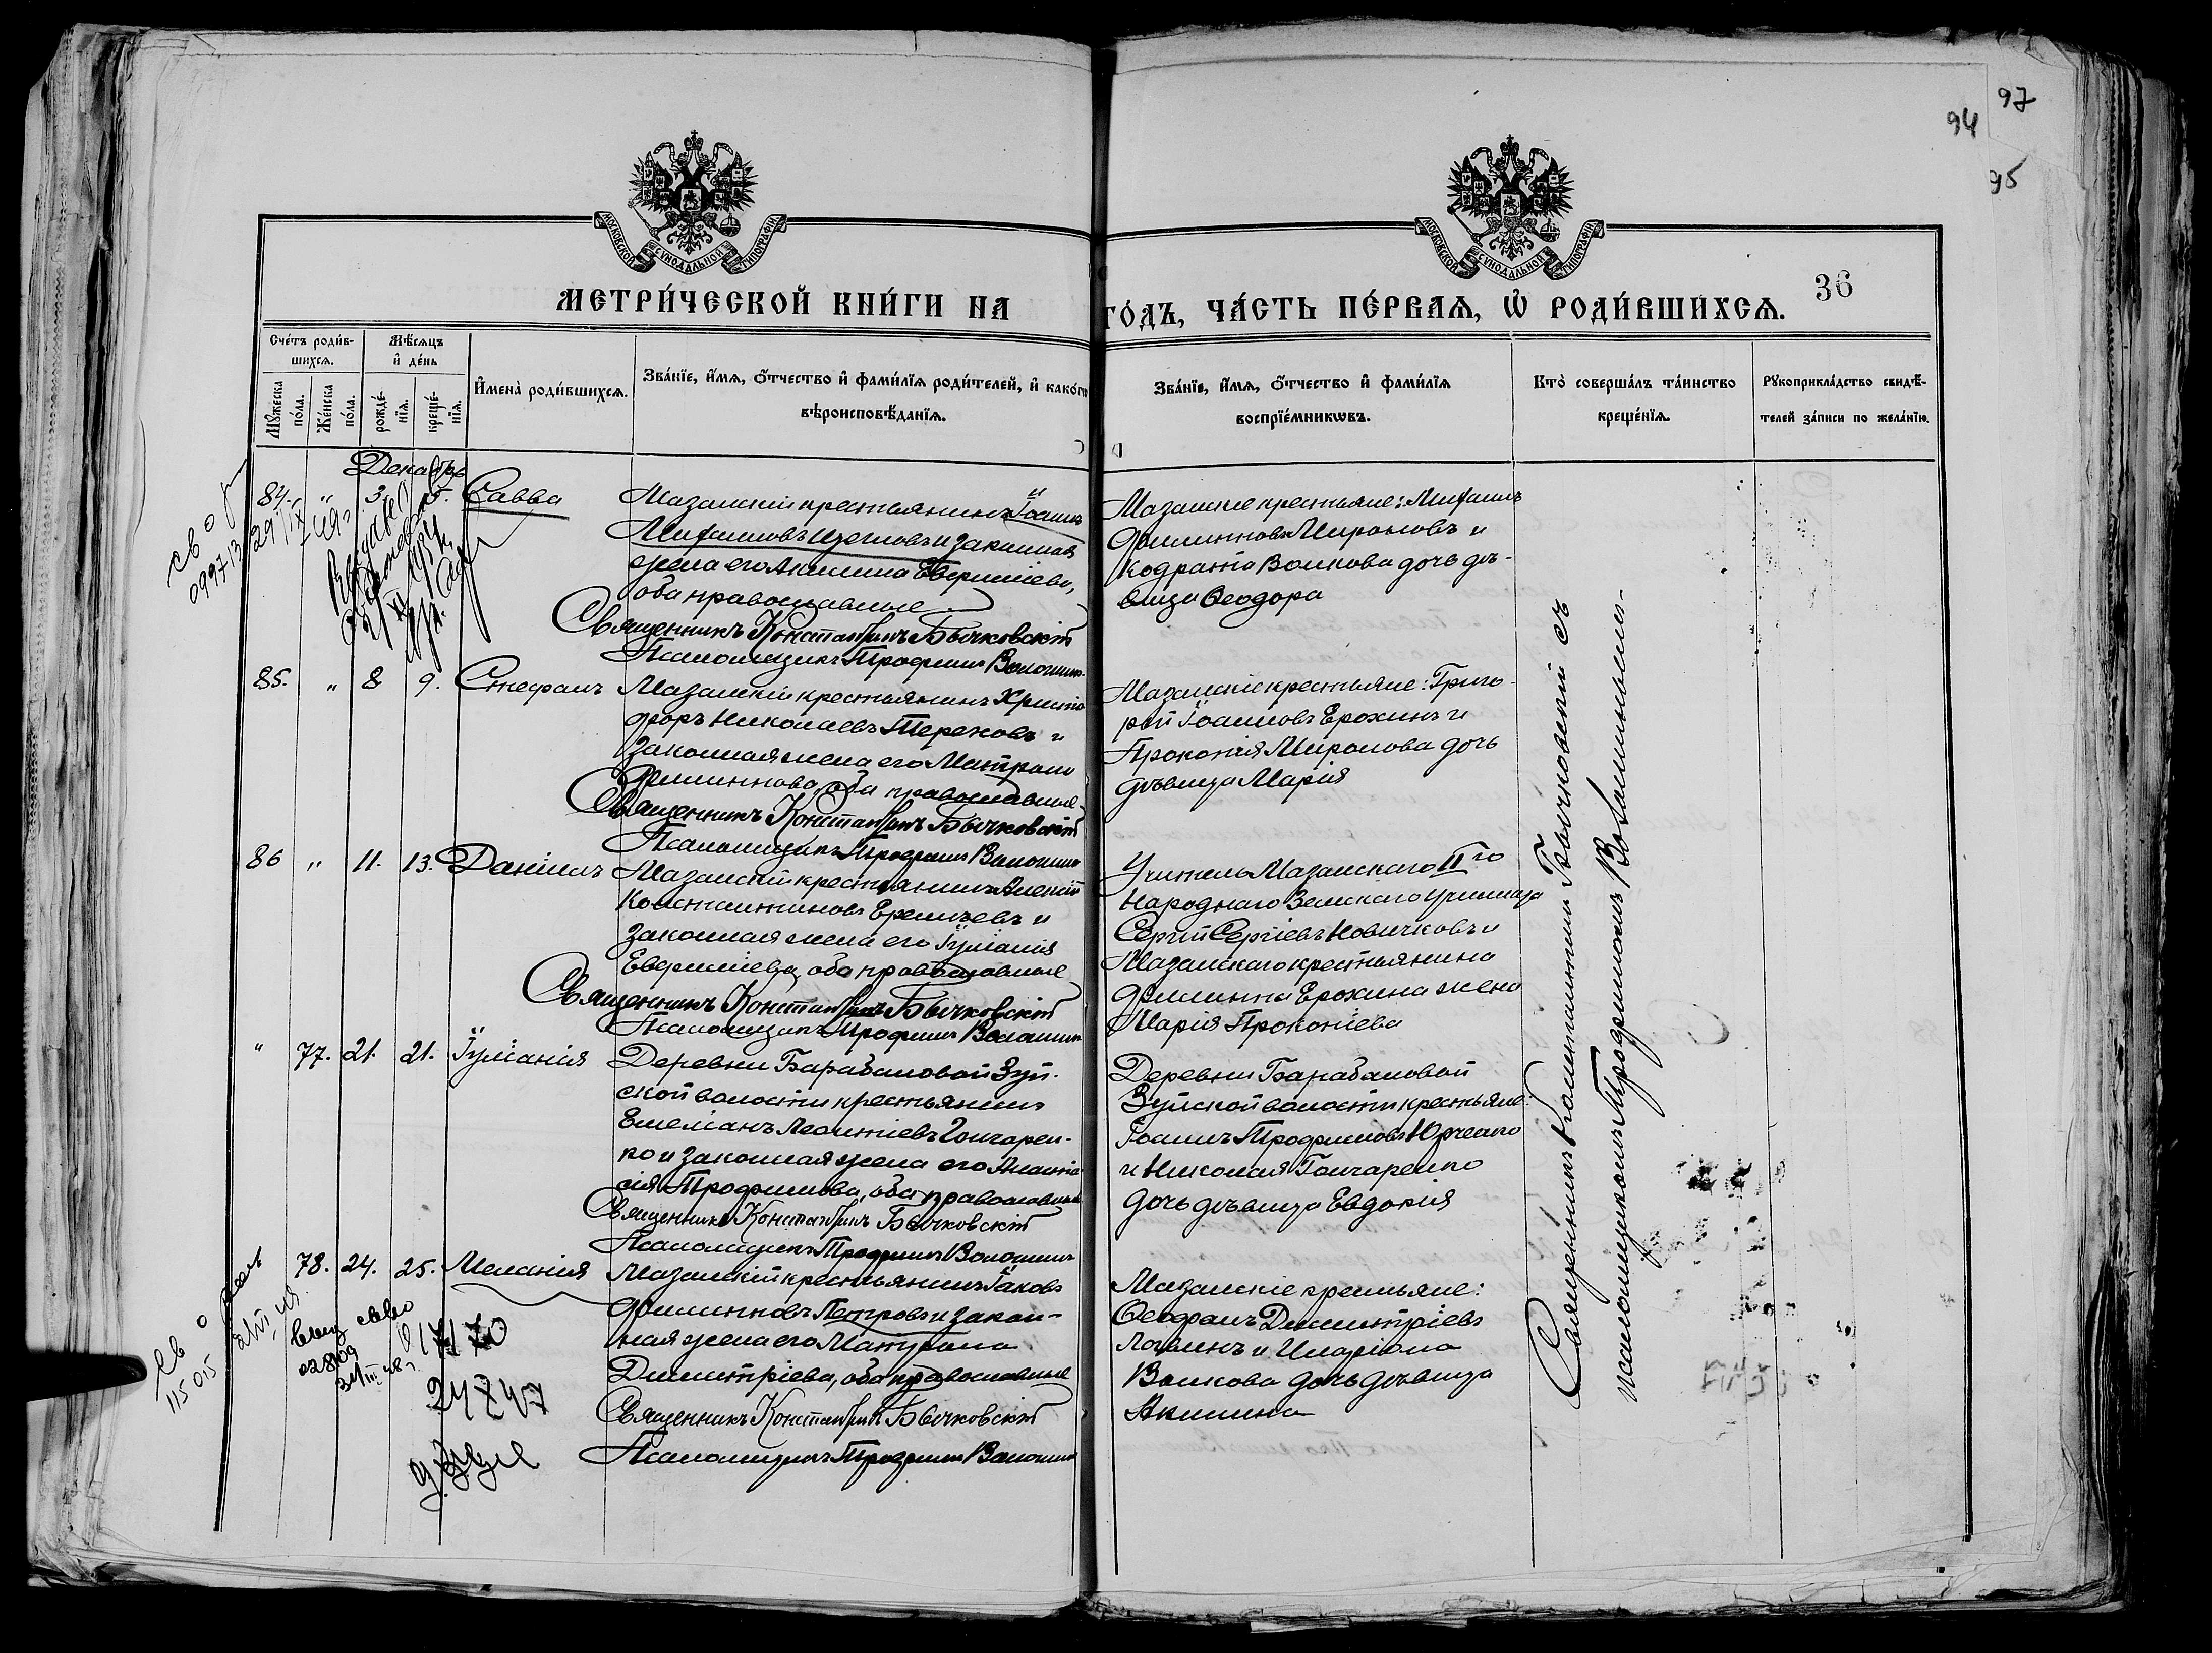 97
94
95
МОСКОВСКОЙ СѴНОДАЛЬНОЙ ТИПОГРАФІИ
МОСКОВСКОЙ СѴНОДАЛЬНОЙ ТИПОГРАФІИ
МЕТРИ́ЧЕСКОЙ КНИ́ГИ НА
ГО́ДЪ, ЧА́СТЬ ПЕ́РВАѦ, Ѡ҆ РОДИ́ВШИХСѦ.
36
Сче́тъ роди́в-
шихсѧ.
Мѣ́сѧцъ
и҆ де́нь
Мꙋ́жеска
по́ла.
Же́нска
по́ла.
рожде́-
нїѧ.
креще́-
нїѧ.
И҆мена̀ роди́вшихсѧ.
Зва́нїе, и҆́мѧ, ѻ҆́тчество и҆ фами́лїѧ роди́телей, и҆ како́гѡ
вѣроисповѣ́данїѧ.
Зва́нїе, и҆́мѧ, ѻ҆́тчество и҆ фами́лїѧ
воспрїе́мникѡвъ.
Кто̀ соверша́лъ та́инство
креще́нїѧ.
Рꙋкоприкла́дство свидѣ́-
телей за́писи по жела́нїю.
Декабрь
84. " 3. 5. Савва
Мазанскій крестьянинъ Іоаннъ
Михаиловъ Щегловъ и законная
жена его Акилина Евфиміева,
оба православные
Священникъ Константинъ Бычковскій
Псаломщикъ Трофимъ Волошинъ
Мазанскіе крестьяне: Михаилъ
Филипповъ Мироновъ и
Кодрата Волкова дочь дѣ-
вица Ѳеодора
85. " 8 9. Стефанъ
Мазанскій крестьянинъ Христо
форъ Николаевъ Тереховъ и
законная жена его Матрона
Филиппова, оба православные
Священникъ Константинъ Бычковскій
Псаломщикъ Трофимъ Волошинъ
Мазанскіе крестьяне: Григо-
рій Іоанновъ Ерохинъ и
Прокопія Миронова дочь
дѣвица Марія
86 " 11. 13. Даніилъ
Мазанскій крестьянинъ Алексій
Константиновъ Еремѣевъ и
законная жена его Іуліанія
Евфиміева, оба православные
Священникъ Константинъ Бычковскій
Псаломщикъ Трофимъ Волошинъ
Учитель Мазанскаго II го
Народнаго Земскаго училища
Сергій Сергіевъ Новичковъ и
Мазанскаго крестьянина
Филиппа Ерохина жена
Марія Прокопіева
" 77. 21. 21. Іуліанія
Деревни Барабановой Зуй-
ской волости крестьянинъ
Емеліанъ Леонтіевъ Гончарен-
ко и законная жена его Анаста
сія Трофимова, оба православные
Священникъ Константинъ Бычковскій
Псаломщикъ Трофимъ Волошинъ
Деревни Барабановой
Зуйской волости крестьяне:
Іоаннъ Трофимовъ Юрченко
и Николая Гончаренко
дочь дѣвица Евдокія
78. 24. 25. Меланія
Мазанскій крестьянинъ Іаковъ
Филипповъ Петровъ и закон-
ная жена его Матрона
Димитріева, оба православные
Священникъ Константинъ Бычковскій
Псаломщикъ Трофимъ Волошинъ
Мазанскіе крестьяне:
Ѳеофанъ Димитріевъ
Логвинъ и Иларіона
Волкова дочь дѣвица
Акилина
Священникъ Константинъ Бычковскій съ
псаломщикомъ Трофимомъ Волошинымъ.
Св о р
099713
Св о
115015
02809
24747